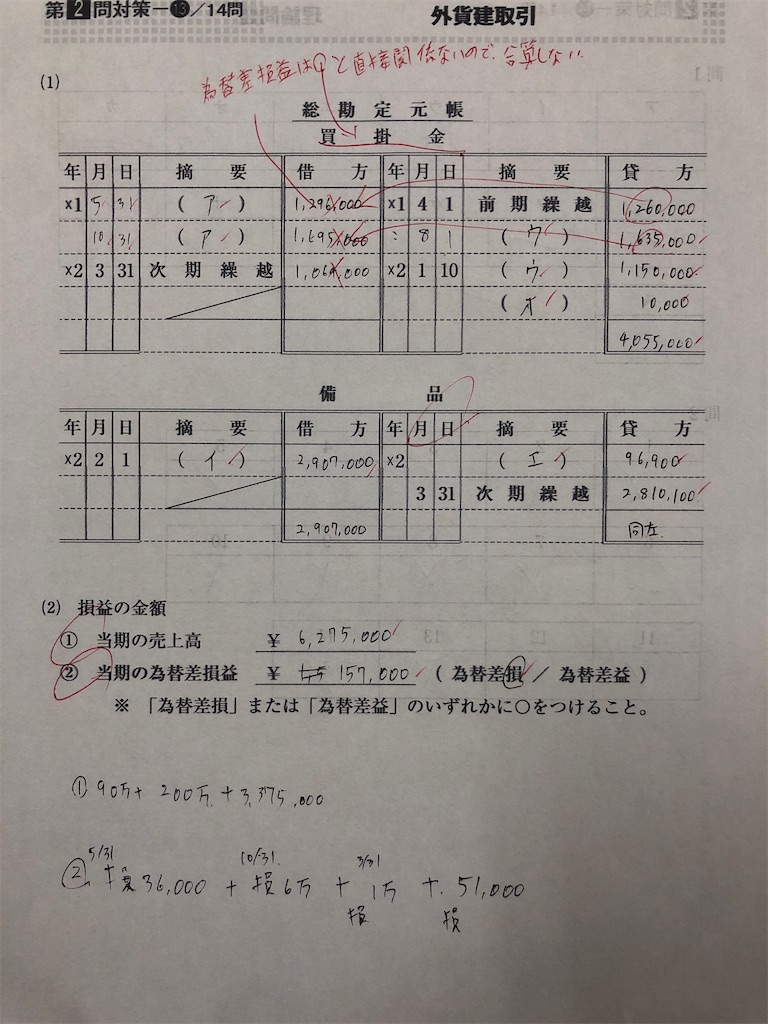 第2問対策－⓭／14問
外貨建取引
為替差損益は①と直接関係ないので、合算しない
(1)
総勘定元帳
買掛金
年 月 日 摘要 借方 年 月 日 摘要 貸方
×1 5 31 (ア) 1,296,000 ×1 4 1 前期繰越 1,260,000
10 31 (ア) 1,695,000 : 8 1 (ウ) 1,635,000
×2 3 31 次期繰越 1,064,000 ×2 1 10 (ウ) 1,150,000
(オ) 10,000
4,055,000
備品
年 月 日 摘要 借方 年 月 日 摘要 貸方
×2 2 1 (イ) 2,907,000 ×2 (エ) 96,900
3 31 次期繰越 2,810,100
2,907,000 同左.
(2) 損益の金額
① 当期の売上高 ¥ 6,275,000
② 当期の為替差損益 ¥ 157,000 (為替差損／為替差益)
※ 「為替差損」または「為替差益」のいずれかに○をつけること。
①90万+ 200万 + 3,375,000
5/31 10/31. 3/31
② 損36,000 + 損6万 + 1万 + 51,000
損 損